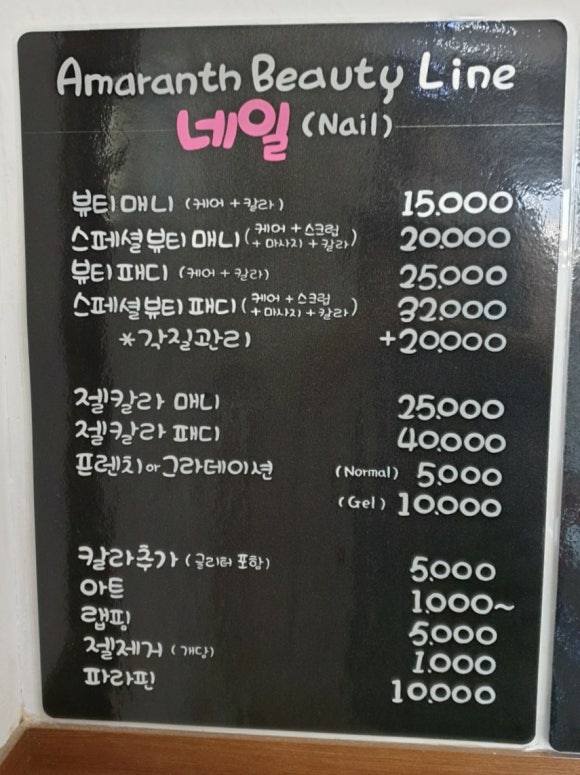 Amaranth Beauty Line
네일 (Nail)
뷰티매니 (케어+칼라) 15.000
스페셜뷰티매니 (케어+스크럽+마사지+칼라) 20.000
뷰티패디 (케어+칼라) 25.000
스페셜뷰티패디 (케어+스크럽+마사지+칼라) 32.000
*각질관리 +20.000
젤칼라 매니 25.000
젤칼라 패디 40.000
프렌치or그라데이션 (Normal) 5.000
(Gel) 10.000
칼라추가 (글리터 포함) 5.000
아트 1.000~
랩핑 5.000
젤제거 (개당) 1.000
파라핀 10.000